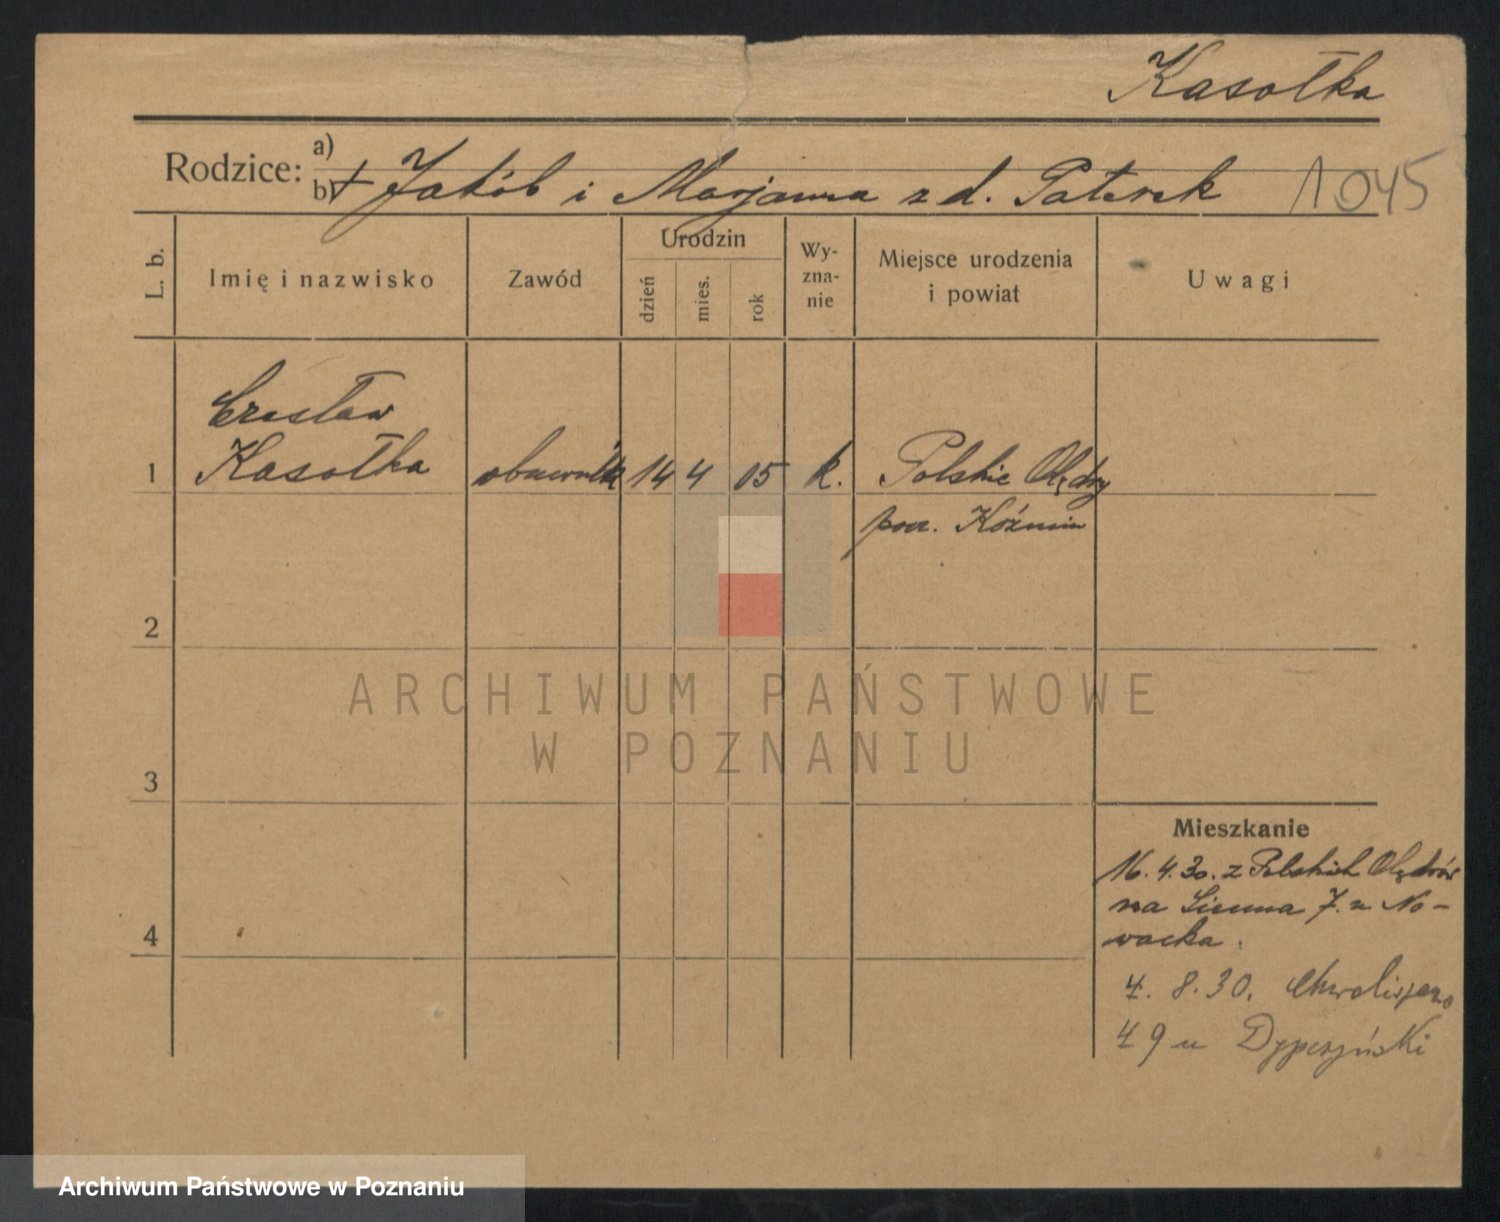 Kasołka
Rodzice: a)
b) + Jakób i Marjanna z d. Paterek 1045
L. b.
Imię i nazwisko
Zawód
Urodzin
dzień
mies.
rok
Wy-
zna-
nie
Miejsce urodzenia
i powiat
Uwagi
Czesław
1 Kasołka obuwnik 14 4 05 k. Polskie Olędry
pow. Koźmin
2
ARCHIWUM PAŃSTWOWE
W POZNANIU
3
Mieszkanie
16. 4. 30. z Polskich Olędrów
na Sienna 7. u No-
wacka.
4
4. 8. 30.
49 u
Archiwum Państwowe w Poznaniu